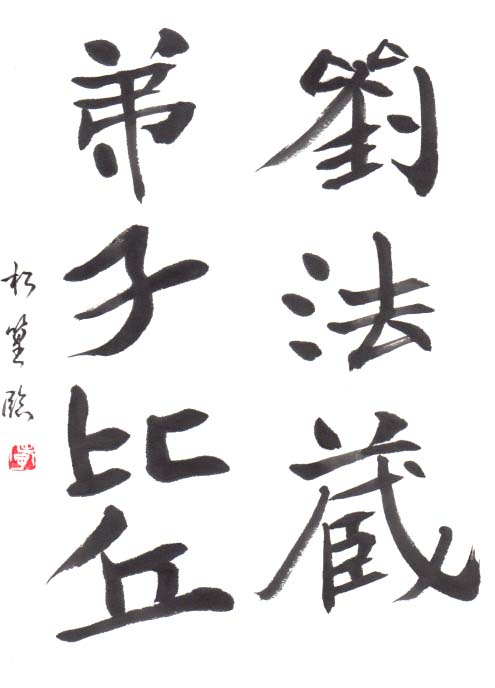 劉法蔵
弟子比丘
松篁臨